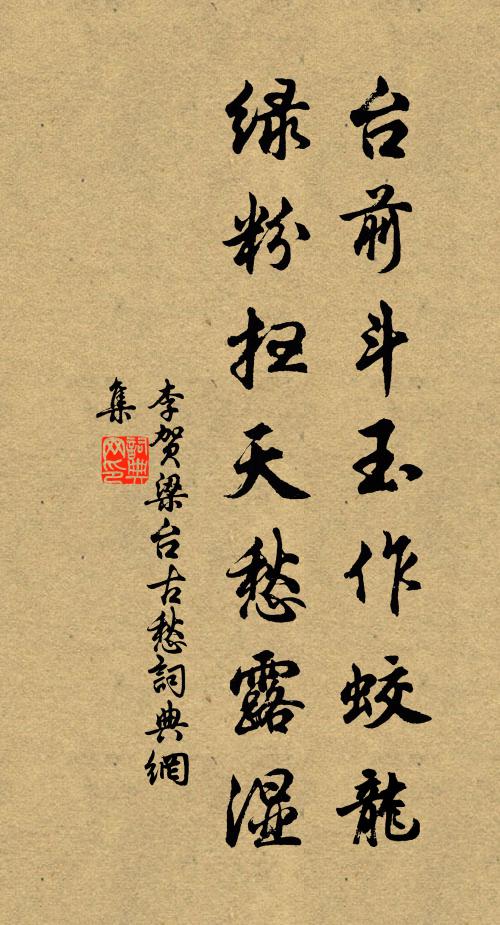 台前斗玉作蛟龍
緑粉扫天愁露湿
李贺梁台古愁詞典網
集
詞典网印